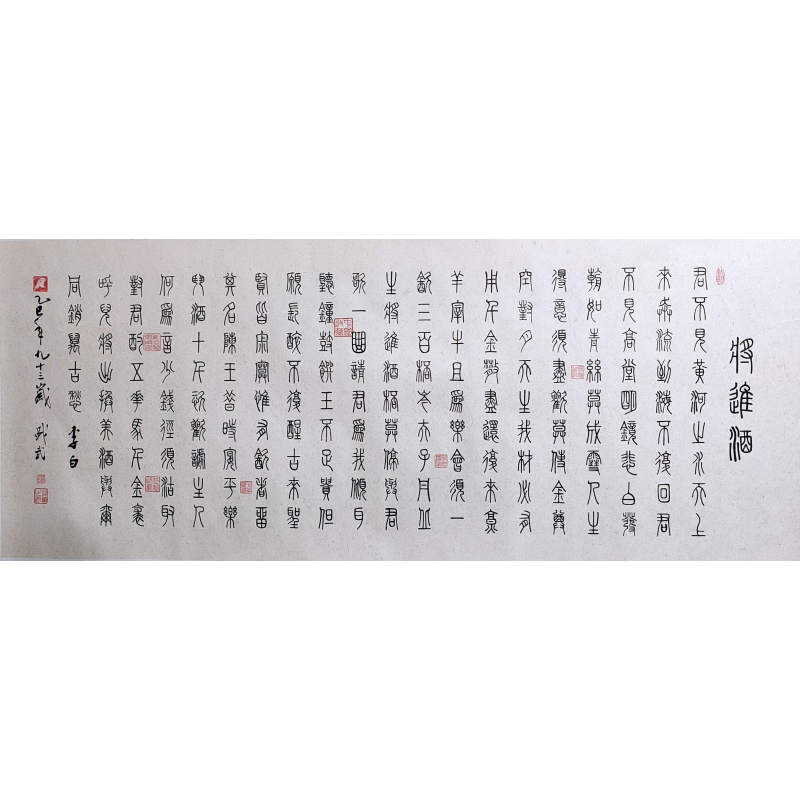 將進酒
君不見黃河之水天上
來奔流到海不復回君
不見高堂明鏡悲白髮
朝如青絲莫成雪人生
得意須盡歡莫使金尊
空對月天生我材必有
用千金散盡還復來烹
羊宰牛且為樂會須一
飲三百桮岑夫子丹丘
生將進酒桮莫停與君
歌一曲請君為我傾耳
聽鐘鼓饌玉不足貴但
願長醉不復醒古來聖
賢皆寂寞惟有飲者留
其名陳王昔時宴平樂
斗酒十千恣歡謔主人
何為言少錢徑須沽取
對君酌五花馬千金裘
呼兒將出換美酒與爾
同銷萬古愁 李白
乙巳年九十三歲